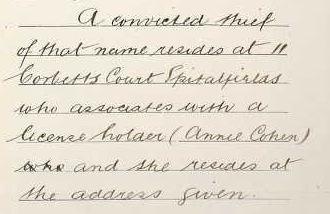 A convicted thief
of that name resides at 11
Corbetts Court Spitalfields
who associates with a
license holder (Annie Cohen)
who and she resides at
the address given.